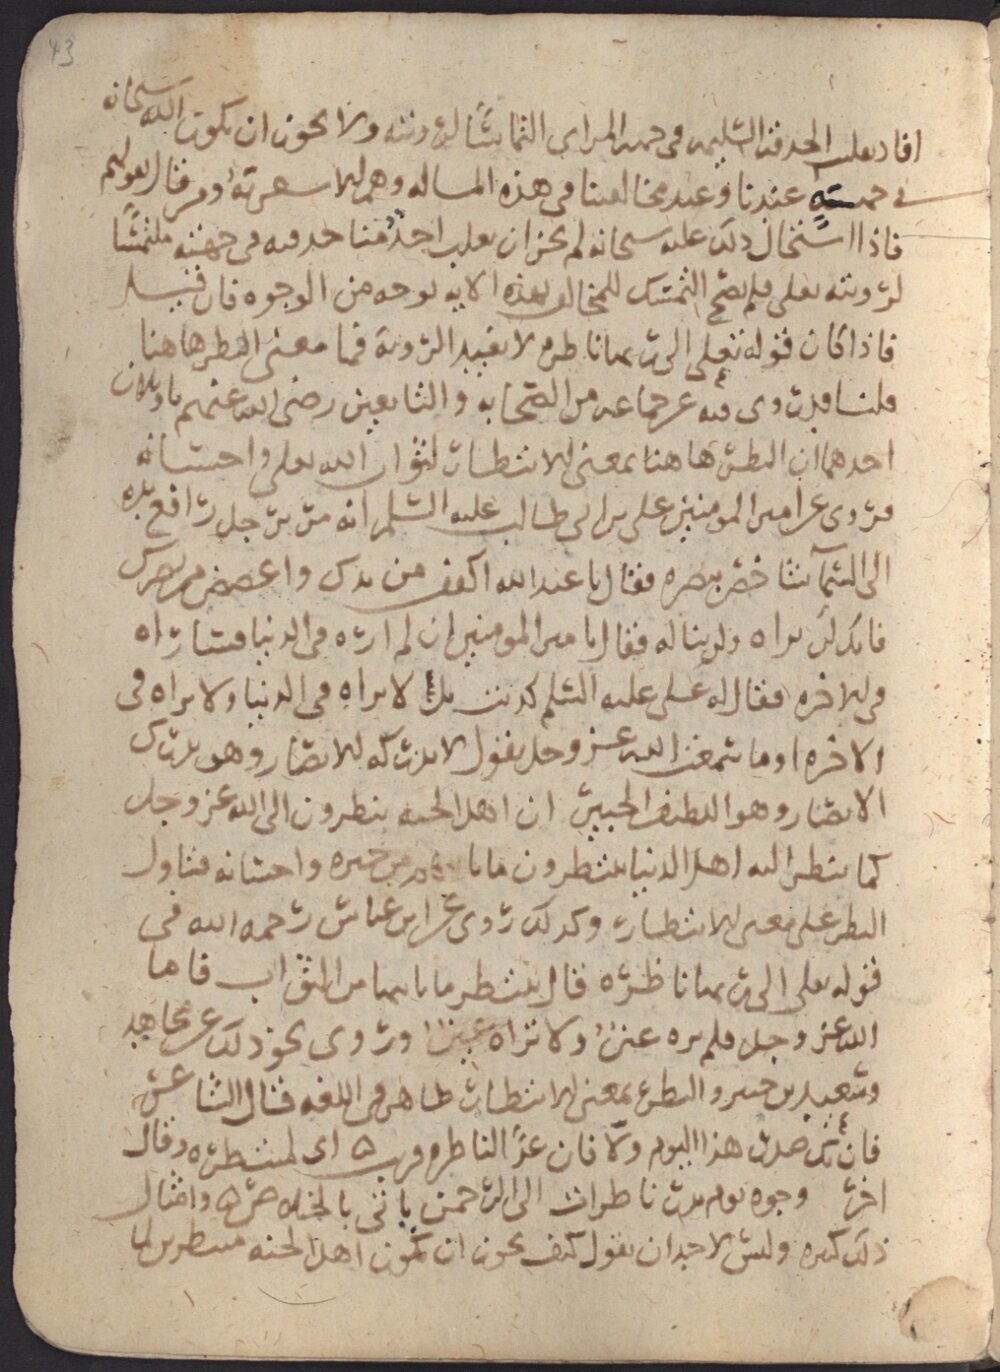 43
افاد تقليب الحدقة السليمة في جهة المرأى التماسًا لرؤيته ولا يجوز ان يكون الله سبحانه
في جهةٍ عندنا وعند مخالفينا في هذه المسالة وهم الاشعرية ومن قال بقولهم
فاذا استحال ذلك عليه سبحانه لم يجز ان يقلب احدٌ منا حدقته في جهته ملتمسًا
لرؤيته تعالى فلم يصح التمسك للمخالف بهذه الآية بوجه من الوجوه فان قيل
فاذا كان قوله تعالى الى ربها ناظرة لا يفيد الرؤية فما معنى النظر هاهنا
قلنا قد روى فيه عن جماعة من الصحابة والتابعين رضى الله عنهم تاويلان
احدهما ان النظر هاهنا بمعنى الانتظار لثواب الله تعالى واحسانه
فروى عن امير المومنين على بن ابى طالب عليه السلم انه مر برجل رافع يده
الى السمآء شاخص ببصره فقال يا عبد الله اكفف من يدك واغضض من بصرك
فانك لن تراه ولن تناله فقال يا امير المومنين ان لم اره في الدنيا فسأراه
في الاخرة فقال له على عليه السلم كذبت بل لا تراه في الدنيا ولا تراه في
الاخرة اوما سمعت الله عز وجل يقول لا تدركه الابصار وهو يدرك
الابصار وهو اللطيف الخبير ان اهل الجنة ينظرون الى الله عز وجل
كما ينظر اليه اهل الدنيا ينتظرون ما ياتيهم من خيره واحسانه فتاول
النظر على معنى الانتظار وكذلك روى عن ابن عباس رحمه الله في
قوله تعالى الى ربها ناظرة قال تنتظر ما ياتيها من الثواب فاما
الله عز وجل فلم تره عينٌ ولا تراه عينٌ وروى نحو ذلك عن مجاهد
وسعيد بن جبير والنظر بمعنى الانتظار ظاهر في اللغة قال الشاعر
فان يك صدر هذا اليوم ولّا فان غدًا لناظره قريب ه اى لمنتظره وقال
اخر وجوه يوم بدر ناظرات الى الرحمن ياتى بالخلاص ه وامثال
ذلك كثيره وليس لاحد ان يقول كيف يجوز ان يكون اهل الجنة منتظرين لما